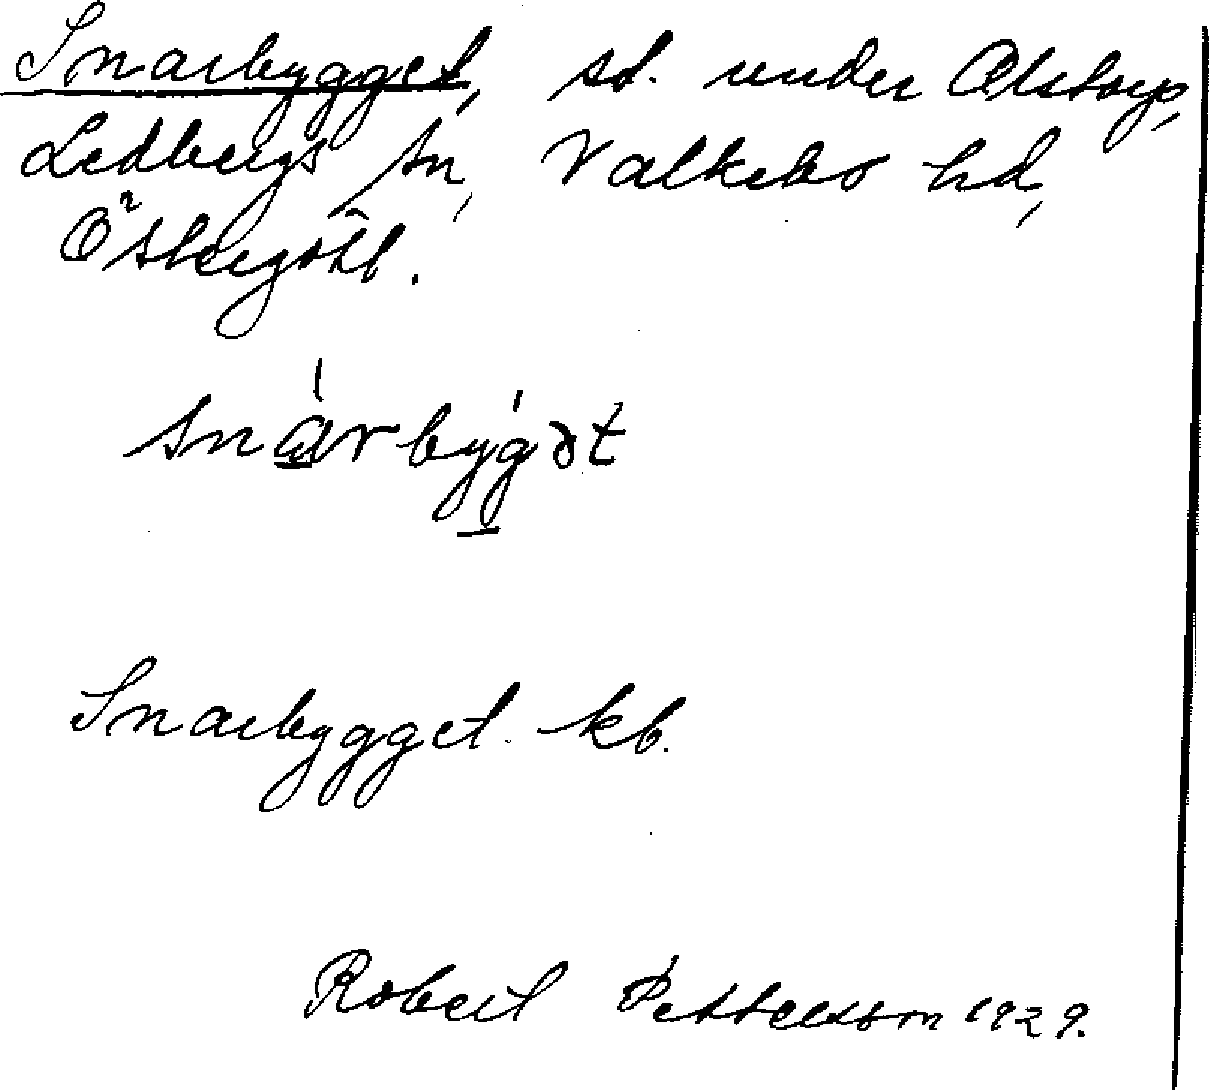 Snarbygget, st. under Alstorp,
Ledbergs sn, Valkebo hd,
Östergötl.
snàrbýgət
Snarbygget kb.
Robert Pettersson 1929.